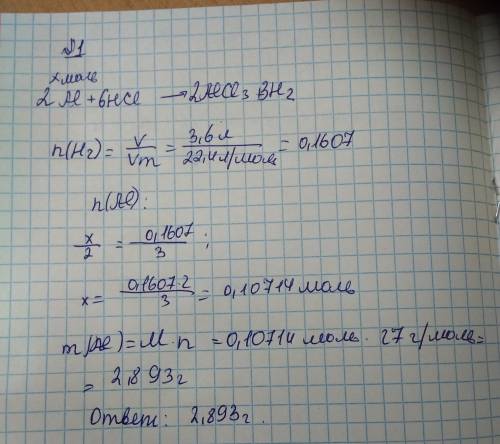 №1
x моль
2Al + 6HCl → 2AlCl3 3H2
n(H2) = V/Vm = 3,6 л/22,4 л/моль = 0,1607
n(Al):
x/2 = 0,1607/3;
x = 0,1607·2/3 = 0,10714 моль
m(Al) = M·n = 0,10714 моль · 27 г/моль =
= 2,893 г
Ответ: 2,893 г.